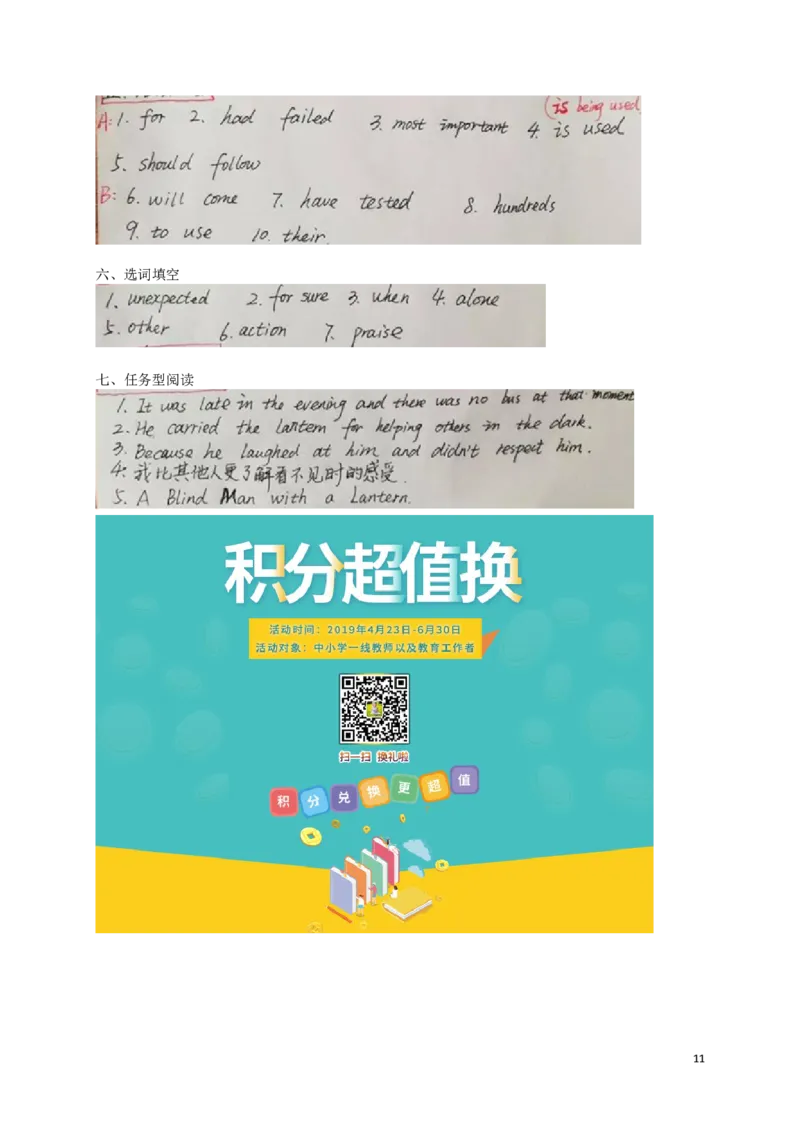 (is being used
A: 1. for 2. had failed 3. most important 4. is used
5. should follow
B: 6. will come 7. have tested 8. hundreds
9. to use 10. their.
六、选词填空
1. unexpected 2. for sure 3. when 4. alone
5. other 6. action 7. praise
七、任务型阅读
1. It was late in the evening and there was no bus at that moment
2. He carried the lantern for helping others in the dark.
3. Because he laughed at him and didn't respect him.
4. 我比其他人更了解看不见时的感受.
5. A Blind Man with a Lantern.
积分超值换
活动时间：2019年4月23日-6月30日
活动对象：中小学一线教师以及教育工作者
扫一扫 换礼啦
积分兑换更超值
11